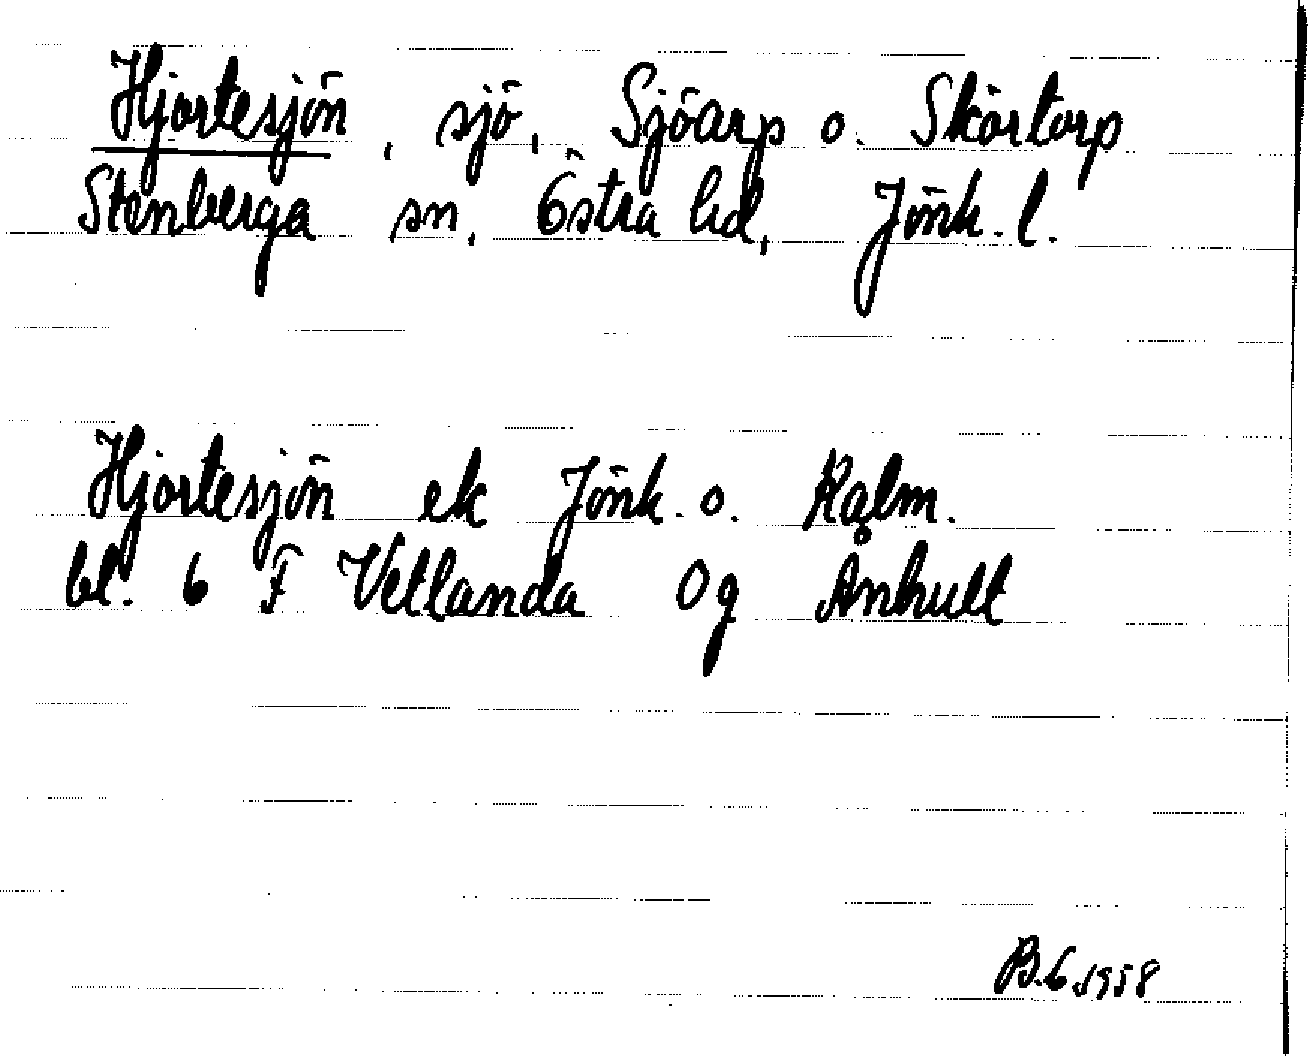 Hjortesjön, sjö, Sjöarp o. Skörtorp
Stenberga sn, Östra hd, Jönk. l.
Hjortesjön ek Jönk. o. Kalm.
bl. 6 F Vetlanda 0g Ånhult
B.G.1958